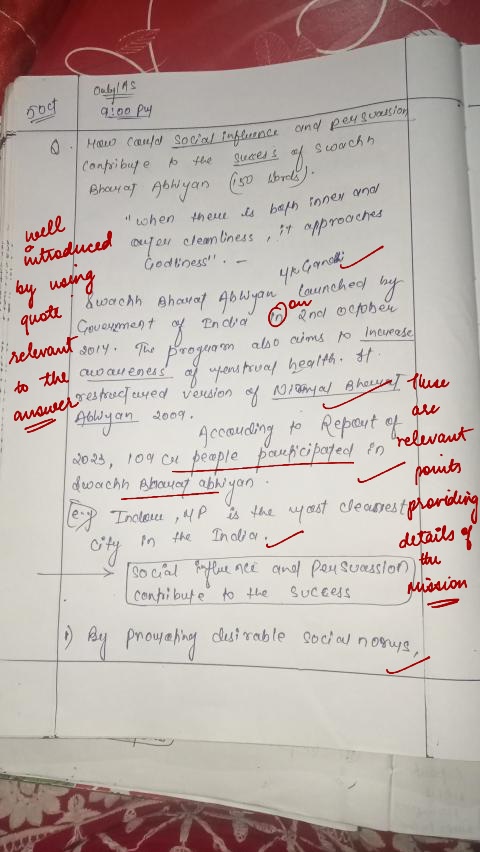 Only IAS
5 Oct
9:00 PM
Q. How could social influence and persuassion
contribute to the success of Swachh
Bharat Abhiyan (150 words).
"when there is both inner and
outer cleanliness, it approaches
Godliness". -
M.K Gandhi
Swachh Bharat Abhiyan launched by
Goverment of India in 2nd october
on
2014. The program also aims to Increase
awareness of menstrual health. It
restructured version of Nirmal Bharat
Abhiyan 2009.
According to Report of
2023, 109 cr people participated in
Swachh Bharat abhiyan.
e.g Indore, MP is the most cleanest
city in the India.
→ Social influence and persuassion
contribute to the success
1) By promoting desirable social norms,
well
introduced
by using
a
quote
relevant
to the
answer
These
are
relevant
points
providing
details of
the
mission